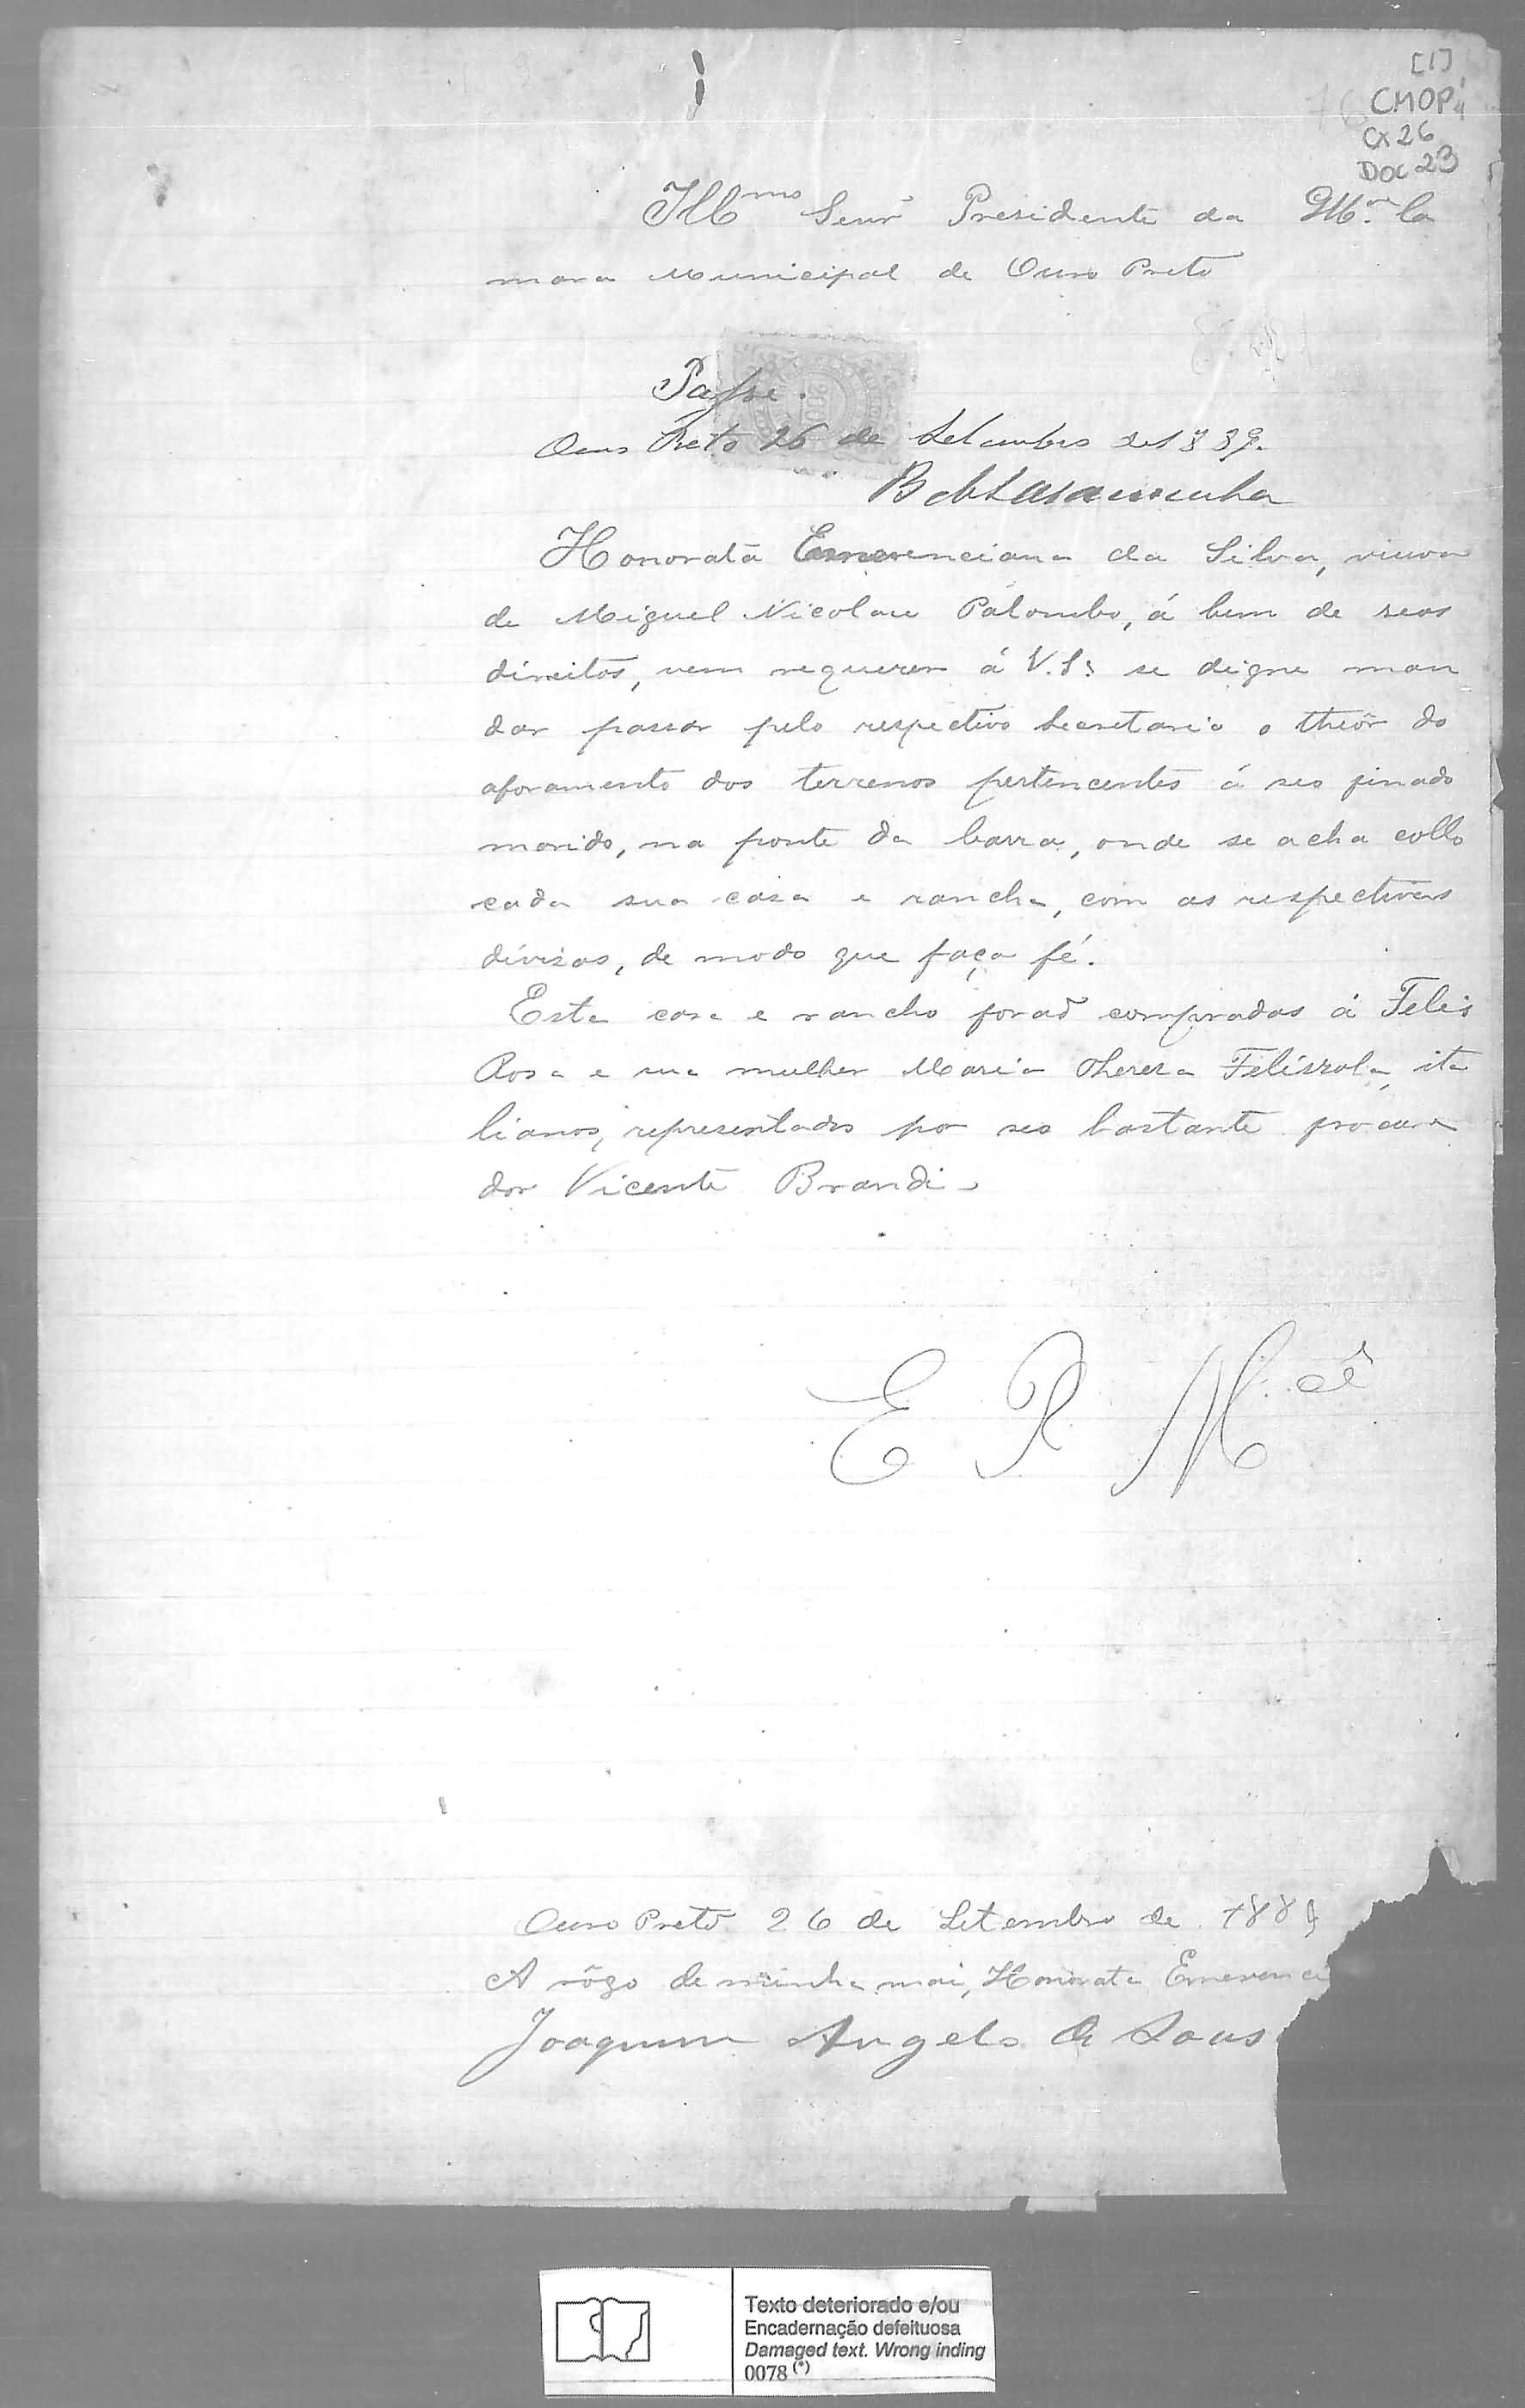 [1]
CMOP
CX 26
DOC 23
Illmo Senr Presidente da Ca
mara Municipal de Ouro Preto
Passe.
Ouro Preto 26 de Setembro de 1889.
Honorata Emerenciana da Silva, viuva
de Miguel Nicolau Palombo, á bem de seos
direitos, vem requerer á V.Sª se digne man
dar passar pelo respectivo Secretario o theôr do
aforamento dos terrenos pertencentes á seo finado
marido, na ponte da barra, onde se acha collo
cada sua casa e rancho, com as respectivas
divisas, de modo que faça fé.
Esta casa e rancho forão compradas á Felis
Rosa e sua mulher Maria Thereza Felissola, ita
lianos, representados por seo bastante procura
dor Vicente Brandi
E R Mcê
Ouro Preto 26 de Setembro de 1889
A rôgo de minha mai, Honorata Emerenci
Joaquim Angelo de Sous
Texto deteriorado e/ou
Encadernação defeituosa
Damaged text. Wrong inding
0078 (*)